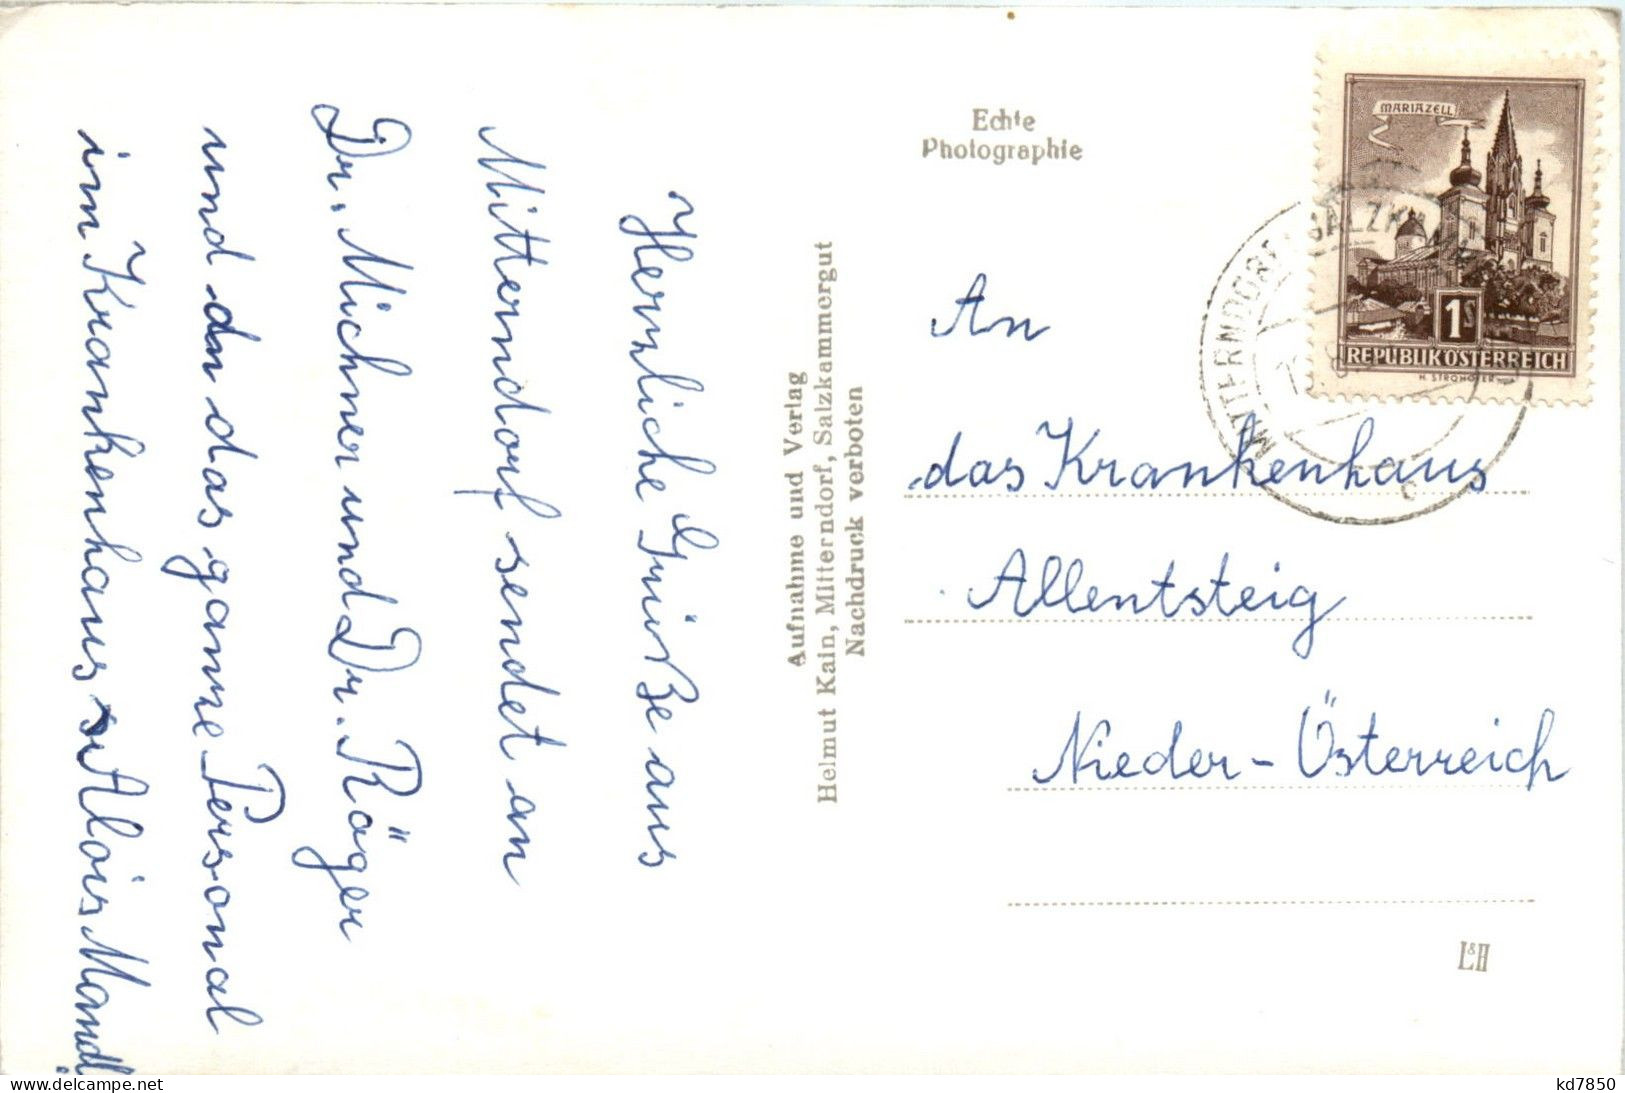 Herzliche Grüße aus
Mitterndorf sendet an
Dr. Michner und Dr. Röger
und an das ganze Personal
im Krankenhaus Alois Mandl
Aufnahme und Verlag
Helmut Kain, Mitterndorf, Salzkammergut
Nachdruck verboten
Echte
Photographie
MARIAZELL
1S
REPUBLIK ÖSTERREICH
H. STROHOFER
MITTERNDORF SALZKAMM
An
das Krankenhaus
Allentsteig
Nieder-Österreich
L&H
delcampe.net
kd7850